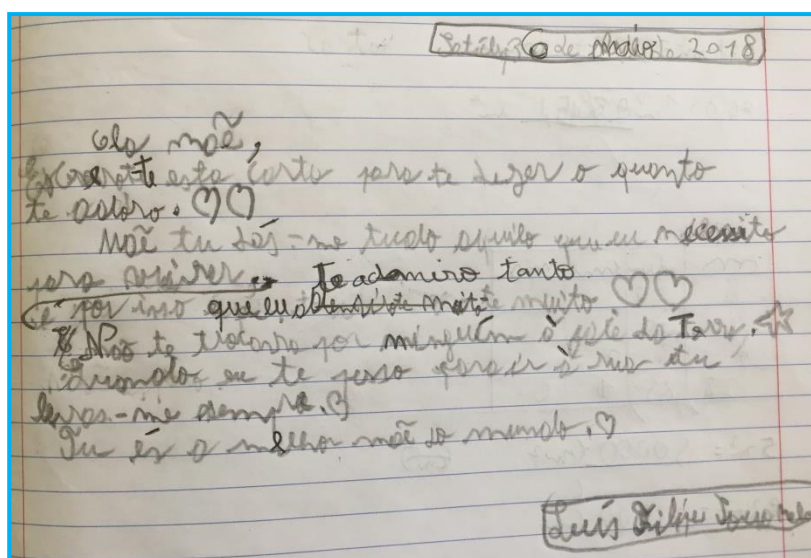 6 de Maio 2018
Ola mãe,
Escrevo-te esta carta para te dezer o quanto
te adoro.
Mãe tu dás-me tudo aquilo que eu necessito
para viver. te adamiro tanto
é por isso que eu muito
Não te trocava por ninguém à face da Terra.
Quando eu te peso para ir à rua tu
levas-me sempre.
Tu és a melhor mãe do mundo.
Luís Filipe